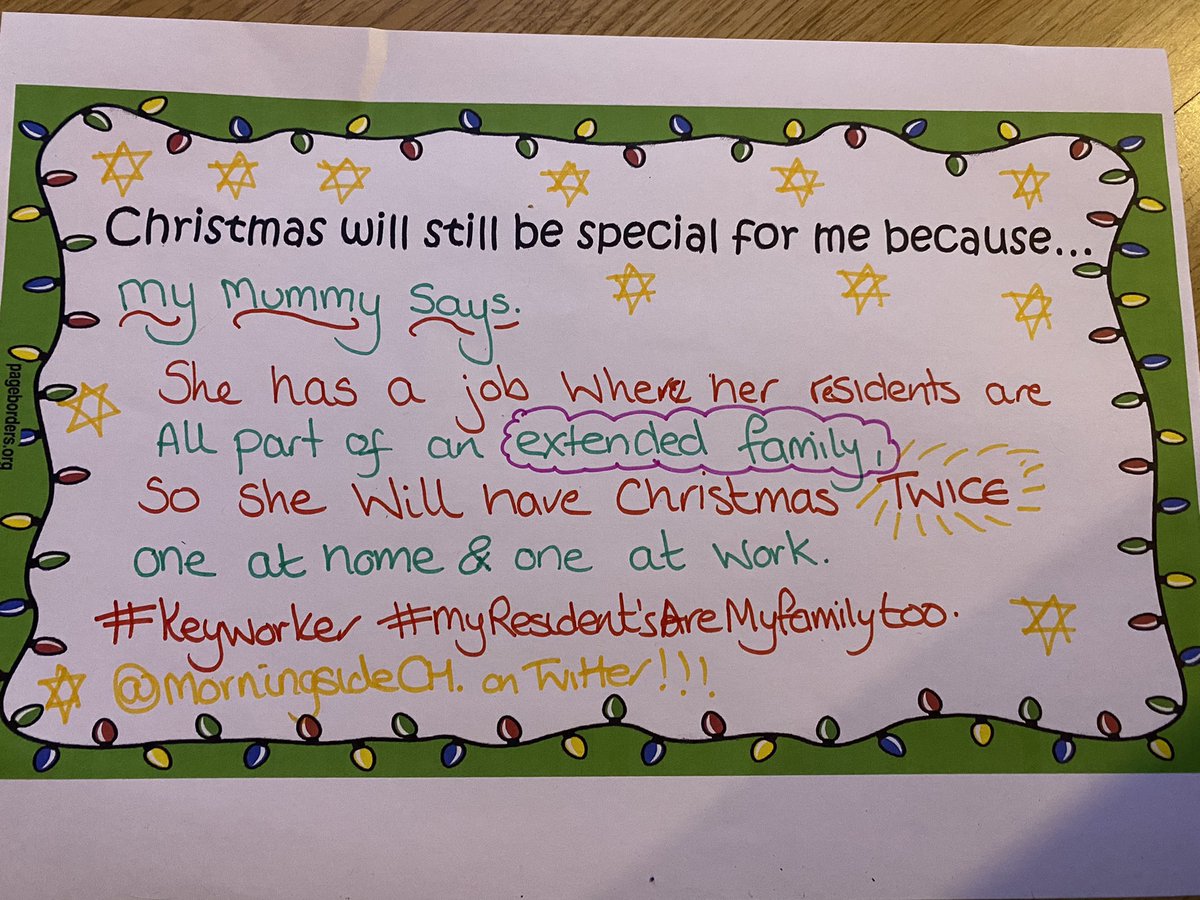 Christmas will still be special for me because...
My Mummy Says.
She has a job where her residents are
All part of an extended family,
So she will have Christmas TWICE
one at home & one at work.
#Keyworker #myResident'sAreMyfamilytoo.
@morningsideCH. on Twitter!!!
pageborders.org